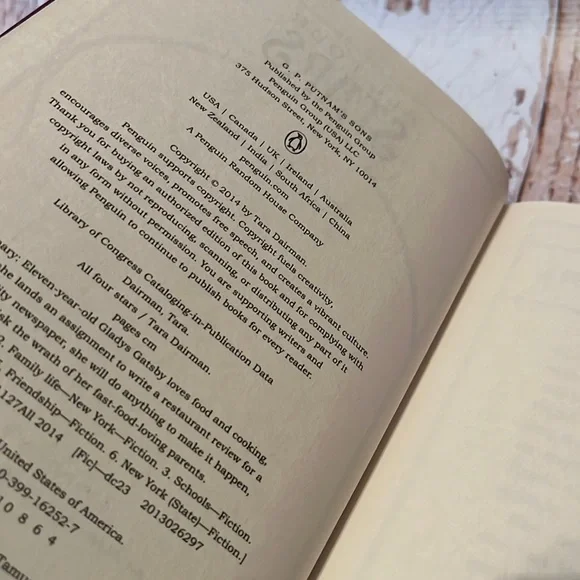 G. P. PUTNAM'S SONS
Published by the Penguin Group
Penguin Group (USA) LLC
375 Hudson Street, New York, NY 10014
USA | Canada | UK | Ireland | Australia
New Zealand | India | South Africa | China
penguin.com
A Penguin Random House Company
Copyright © 2014 by Tara Dairman.
Penguin supports copyright. Copyright fuels creativity,
encourages diverse voices, promotes free speech, and creates a vibrant culture.
Thank you for buying an authorized edition of this book and for complying with
copyright laws by not reproducing, scanning, or distributing any part of it
in any form without permission. You are supporting writers and
allowing Penguin to continue to publish books for every reader.
Library of Congress Cataloging-in-Publication Data
Dairman, Tara.
All four stars / Tara Dairman.
pages cm
ary: Eleven-year-old Gladys Gatsby loves food and cooking,
he lands an assignment to write a restaurant review for a
ty newspaper, she will do anything to make it happen,
sk the wrath of her fast-food-loving parents.
2. Family life—New York—Fiction. 3. Schools—Fiction.
. Friendship—Fiction. 6. New York (State)—Fiction.]
.127All 2014 [Fic]—dc23 2013026297
United States of America.
0-399-16252-7
10 8 6 4
Tamu